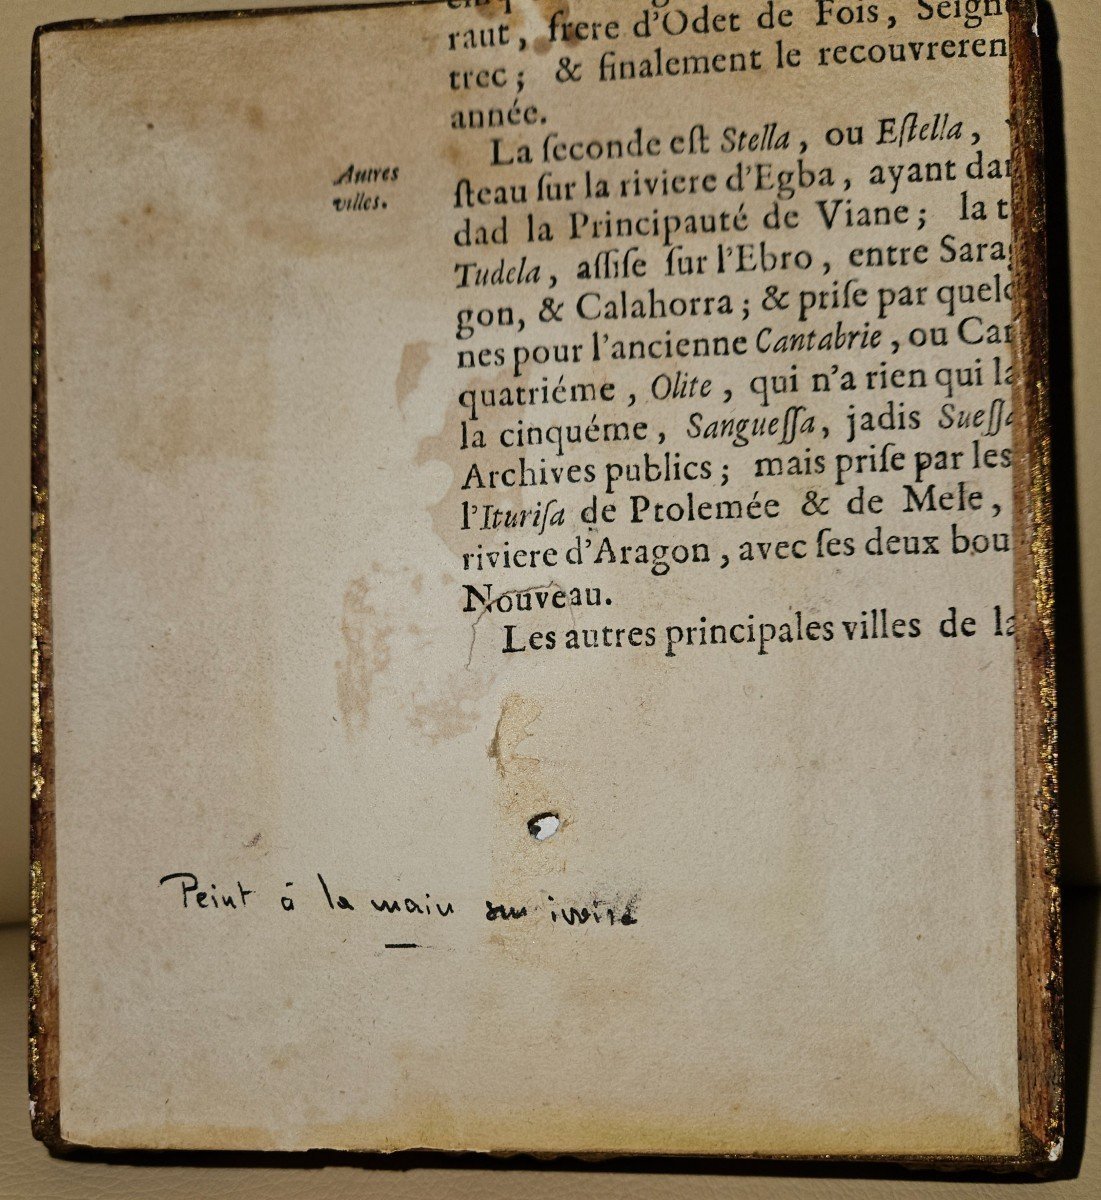 raut, frere d'Odet de Fois, Seign
trec; & finalement le recouvreren
année.
La ſeconde eſt Stella, ou Eſtella,
Autres
villes.
ſteau ſur la riviere d'Egba, ayant dan
dad la Principauté de Viane; la t
Tudela, aſſiſe ſur l'Ebro, entre Sarag
gon, & Calahorra; & priſe par quelq
nes pour l'ancienne Cantabrie, ou Can
quatriéme, Olite, qui n'a rien qui la
la cinquéme, Sangueſſa, jadis Sueſſa
Archives publics; mais priſe par les
l'Ituriſa de Ptolemée & de Mele,
riviere d'Aragon, avec ſes deux bou
Nouveau.
Les autres principales villes de la
Peint à la main sur ivoire